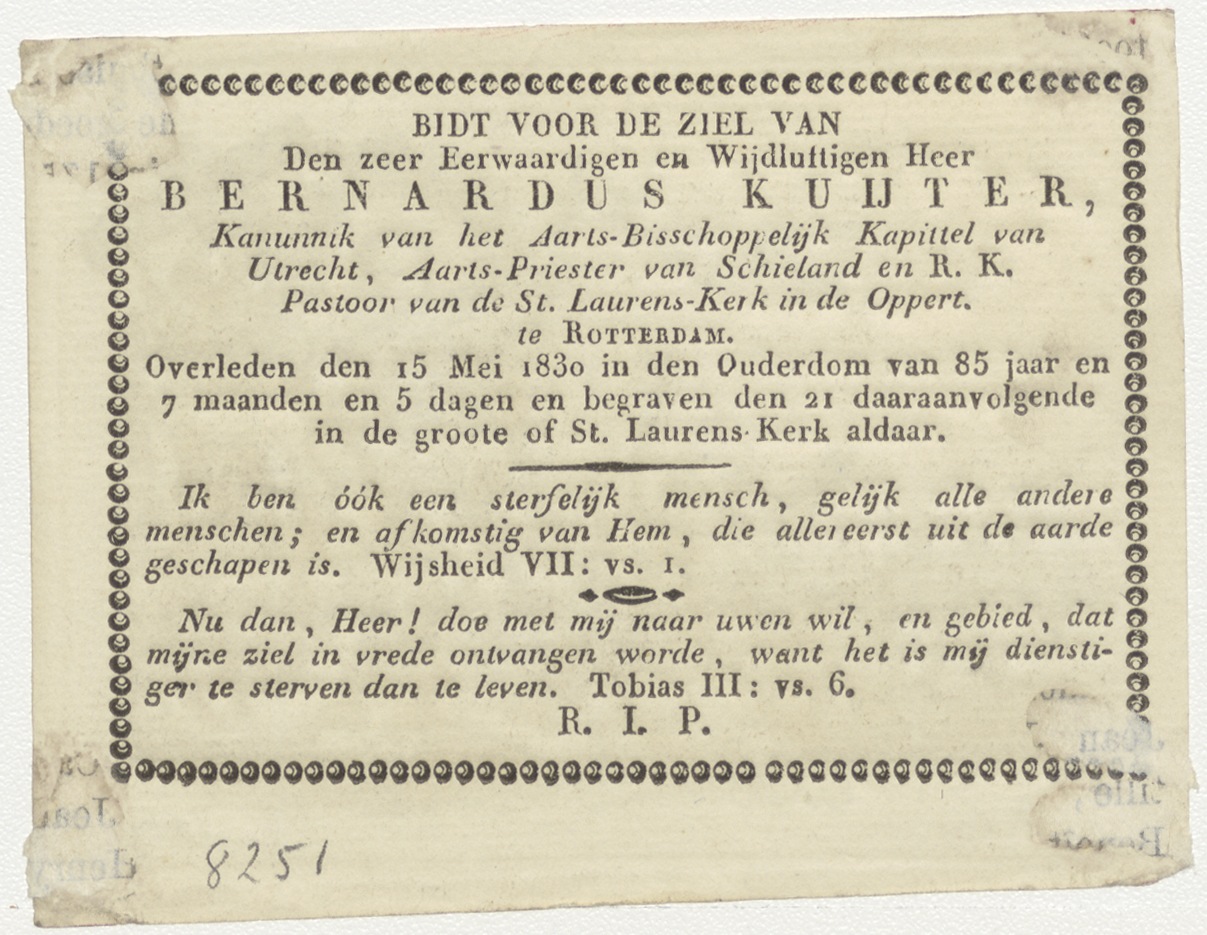 BIDT VOOR DE ZIEL VAN
Den zeer Eerwaardigen en Wijdluftigen Heer
BERNARDUS KUIJTER,
Kanunnik van het Aarts-Bisschoppelijk Kapittel van
Utrecht, Aarts-Priester van Schieland en R. K.
Pastoor van de St. Laurens-Kerk in de Oppert.
te ROTTERDAM.
Overleden den 15 Mei 1830 in den Ouderdom van 85 jaar en
7 maanden en 5 dagen en begraven den 21 daaraanvolgende
in de groote of St. Laurens-Kerk aldaar.
Ik ben óók een sterfelijk mensch, gelijk alle andere
menschen; en afkomstig van Hem, die allereerst uit de aarde
geschapen is. Wijsheid VII: vs. 1.
Nu dan, Heer! doe met mij naar uwen wil, en gebied, dat
mijne ziel in vrede ontvangen worde, want het is mij diensti-
ger te sterven dan te leven. Tobias III: vs. 6.
R. I. P.
8251